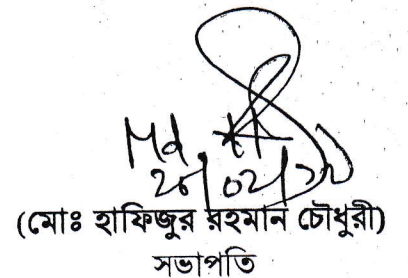 Md
(মোঃ হাফিজুর রহমান চৌধুরী)
সভাপতি